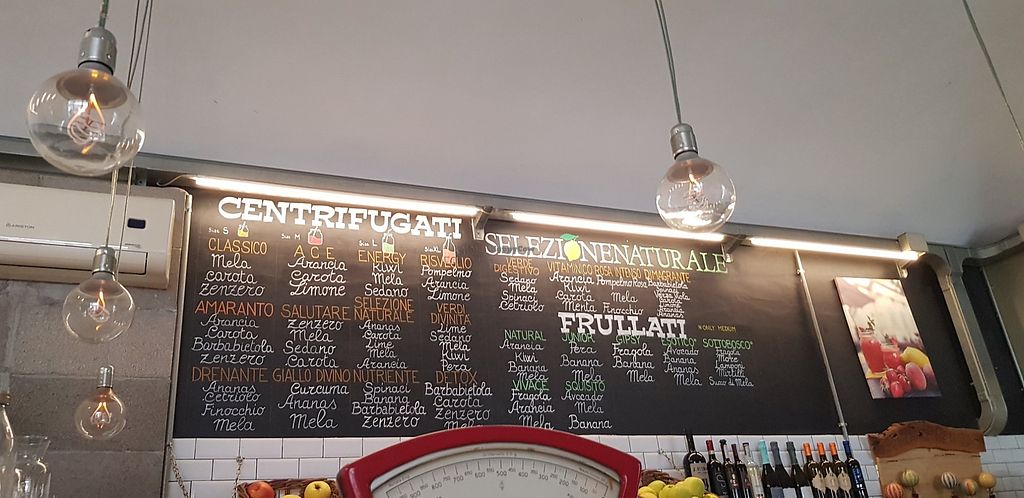 CENTRIFUGATI
SIZE S
Size M
Size L
Size XL
CLASSICO
Mela
carota
zenzero
A C E
Arancia
Carota
Limone
ENERGY
Kiwi
Mela
Sedano
RISVEGLIO
Pompelmo
Arancia
Limone
AMARANTO
Arancia
Carota
Barbabietola
zenzero
SALUTARE
zenzero
Mela
Sedano
Carota
SELEZIONE
NATURALE
Ananas
Carota
Lime
Mela
Arancia
VERDE
DIVINITÀ
Lime
Sedano
Mela
Kiwi
Pera
DRENANTE
Ananas
Cetriolo
Finocchio
Mela
GIALLO DIVINO
Curcuma
Ananas
Mela
NUTRIENTE
Spinaci
Banana
Barbabietola
zenzero
DETOX
Barbabietola
Carota
zenzero
Mela
SELEZIONENATURALE
VERDE
DIGESTIVO
Sedano
Mela
Spinaci
Cetriolo
VITAMINICO
Arancia
Kiwi
Carota
Menta
ROSA INTENSO
Pompelmo Rosa
Mela
Finocchio
DIMAGRANTE
Barbabietola
Spinaci
Arancia
Ananas
FRULLATI
* ONLY MEDIUM
NATURAL
Arancia
Kiwi
Banana
Mela
JUNIOR
Pera
Banana
Mela
GIPSY
Fragola
Banana
Mela
ESOTICO*
Avocado
Banana
Ananas
Mela
SOTTOBOSCO*
Fragola
More
Lamponi
Mirtilli
Succo di Mela
VIVACE
Fragola
Arancia
Mela
SQUISITO
Avocado
Mela
Banana
ARISTON